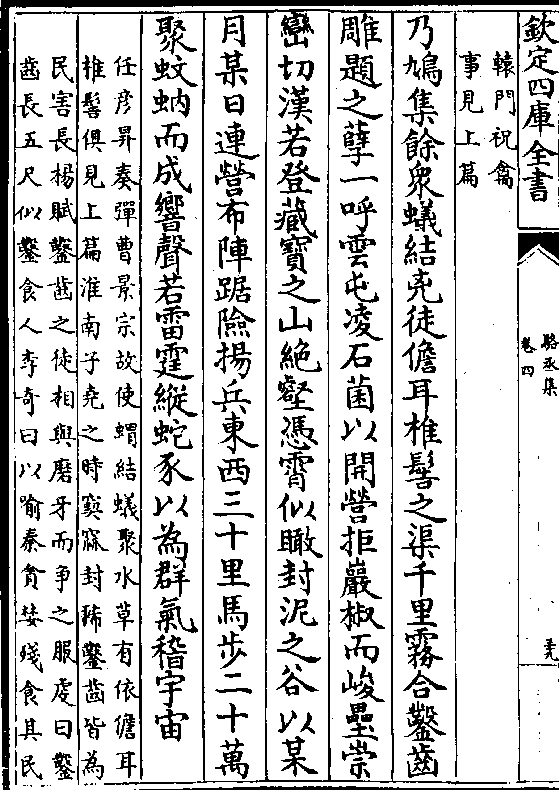 欽定四庫全書
駱丞集
卷四
轅門祝龠
事見上篇
乃鳩集餘衆蟻結兇徒儋耳椎髻之渠千里霧合鑿齒
雕題之孽一呼雲屯凌石菌以開營拒巖椒而峻壘崇
巒切漢若登藏寶之山絶壑憑霄似瞰封泥之谷以某
月某日連營布陣踞險揚兵東西三十里馬步二十萬
聚蚊蚋而成響聲若雷霆縱蛇豕以為羣氣稽宇宙
任彦昇奏彈曹景宗故使蝟結蟻聚水草有依儋耳
椎髻俱見上篇淮南子堯之時窫窳封豨鑿齒皆為
民害長楊賦鑿齒之徒相與磨牙而争之服虔曰鑿
齒長五尺似鑿食人李奇曰以喻秦貪婪殘食其民